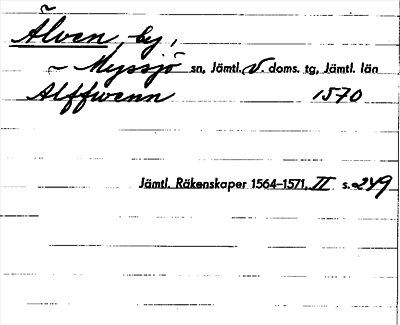 Älven, by,
~ Myssjö sn, Jämtl. V. doms. tg, Jämtl. län
Alffwenn 1570
Jämtl. Räkenskaper 1564–1571, II s. 249